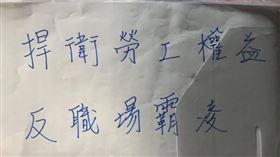 捍衛勞工權益
反職場霸凌